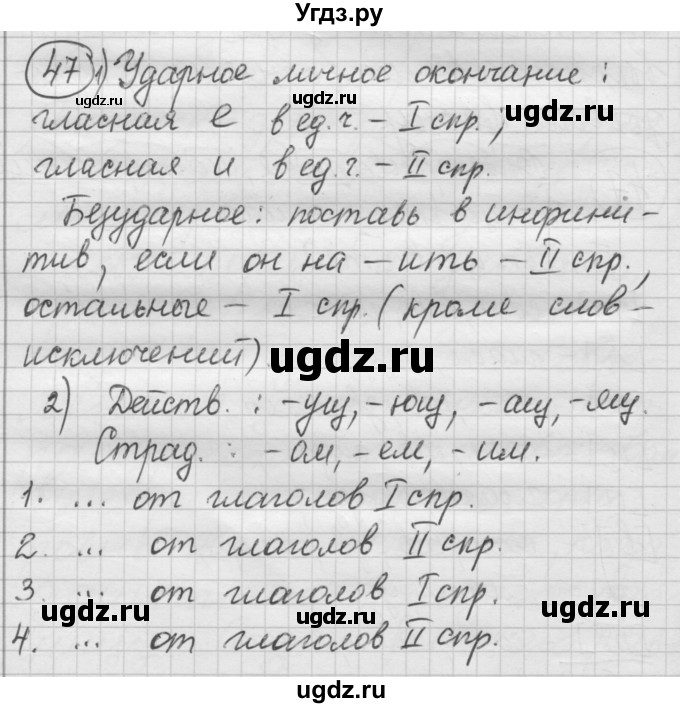 Угдз.ру
47 1) Ударное личное окончание :
ugdz.ru
гласная е в ед.ч. – I спр.;
ugdz.ru ugdz.ru
гласная и в ед.ч. – II спр.
Безударное: поставь в инфини-
тив, если он на – ить – II спр.,
остальные – I спр. (кроме слов-
исключений)
ugdz.ru
2) Действ. : -ущ, -ющ, -ащ, -ящ.
Страд. : -ом, -ем, -им.
ugdz.ru
1. ... от глаголов I спр.
2. ... от глаголов II спр.
ugdz.ru
3. ... от глаголов I спр.
ugdz.ru ugdz.ru
4. ... от глаголов II спр.
ugdz.ru
ugdz.ru